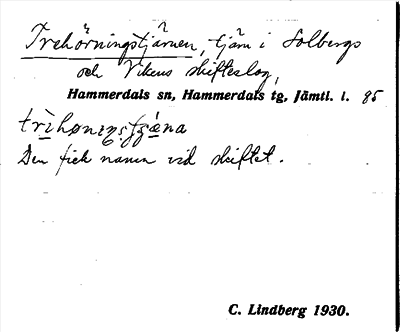 Trehörningstjärnen, tjärn i Solbergs
och Vikens skifteslag,
Hammerdals sn, Hammerdals tg, Jämtl. l. 85
Den fick namn vid skiftet.
C. Lindberg 1930.